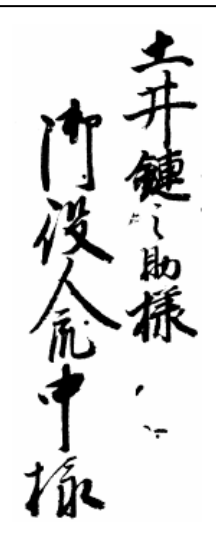 土井鏈之助様
御役人衆中様